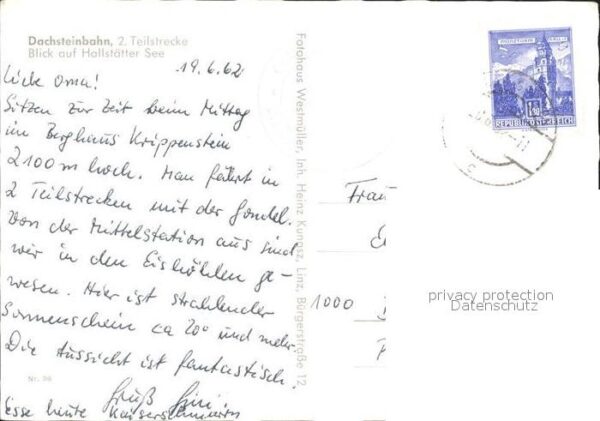 Dachsteinbahn, 2. Teilstrecke
Blick auf Hallstätter See
19.6.62
Liebe Oma!
Sitzen zur Zeit beim Mittag
im Berghaus Krippenstein
2100 m hoch. Man fährt in
2 Teilstrecken mit der Gondel.
Von der Mittelstation aus sind
wir in den Eishöhlen ge-
wesen. Hier ist strahlender
Sonnenschein ca 20° und mehr.
Die Aussicht ist fantastisch.
Gruß
Esse heute Kaiserschmarrn
Nr. 96
Fotohaus Westmüller, Inh. Heinz Kungsz, Linz, Bürgerstraße 12
REPUBLIK ÖSTERREICH
Frau
1000
privacy protection
Datenschutz